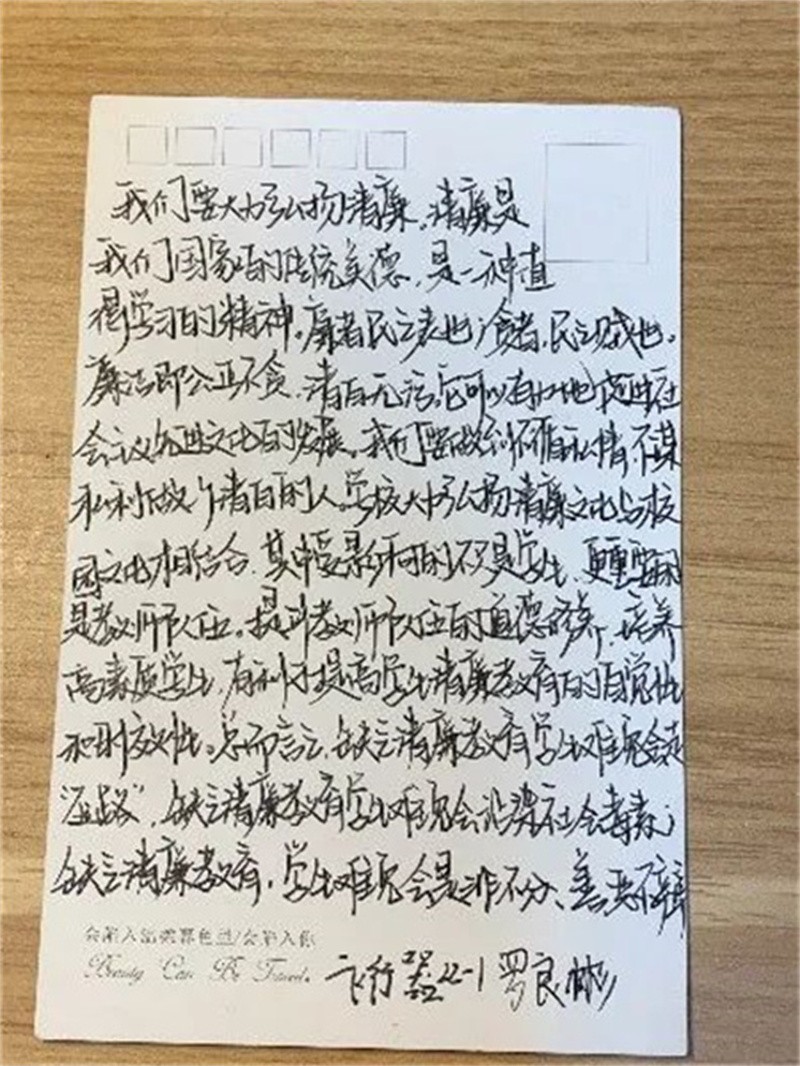 我们要大力弘扬清廉。清廉是
我们国家的传统美德，是一种值
得学习的精神。廉者民之表也，贪者，民之贼也。
廉洁即公正不贪，清白无污。它可以有力地促进社
会主义先进文化的发展。我们要做到不循私情不谋
私利做个清白的人。学校大力弘扬清廉文化与校
园文化相结合，其中受影响的不只是学生，更重要的
是教师队伍。提升教师队伍的道德修养，培养
高素质学生，有利于提高学生清廉教育的自觉性
和时效性。总而言之，缺乏清廉教育学生难免会走
"歪路"，缺乏清廉教育学生难免会沾染社会毒素；
缺乏清廉教育，学生难免会是非不分、善恶不辨
会落入温柔暮色里/会落入你
Beauty Can Be Found.
飞行 22-1 罗良彬